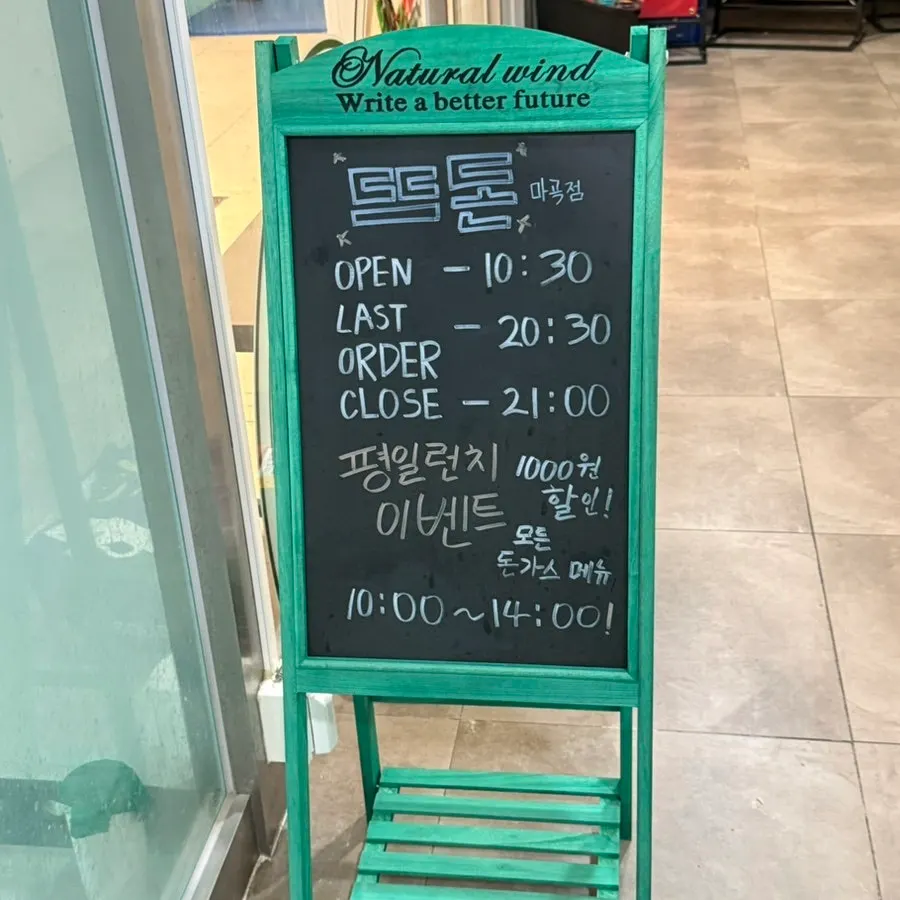 Natural wind
Write a better future
뜨돈 마곡점
OPEN - 10:30
LAST
ORDER - 20:30
CLOSE - 21:00
평일런치 1000원
이벤트 할인!
모든
돈가스 메뉴
10:00~14:00!